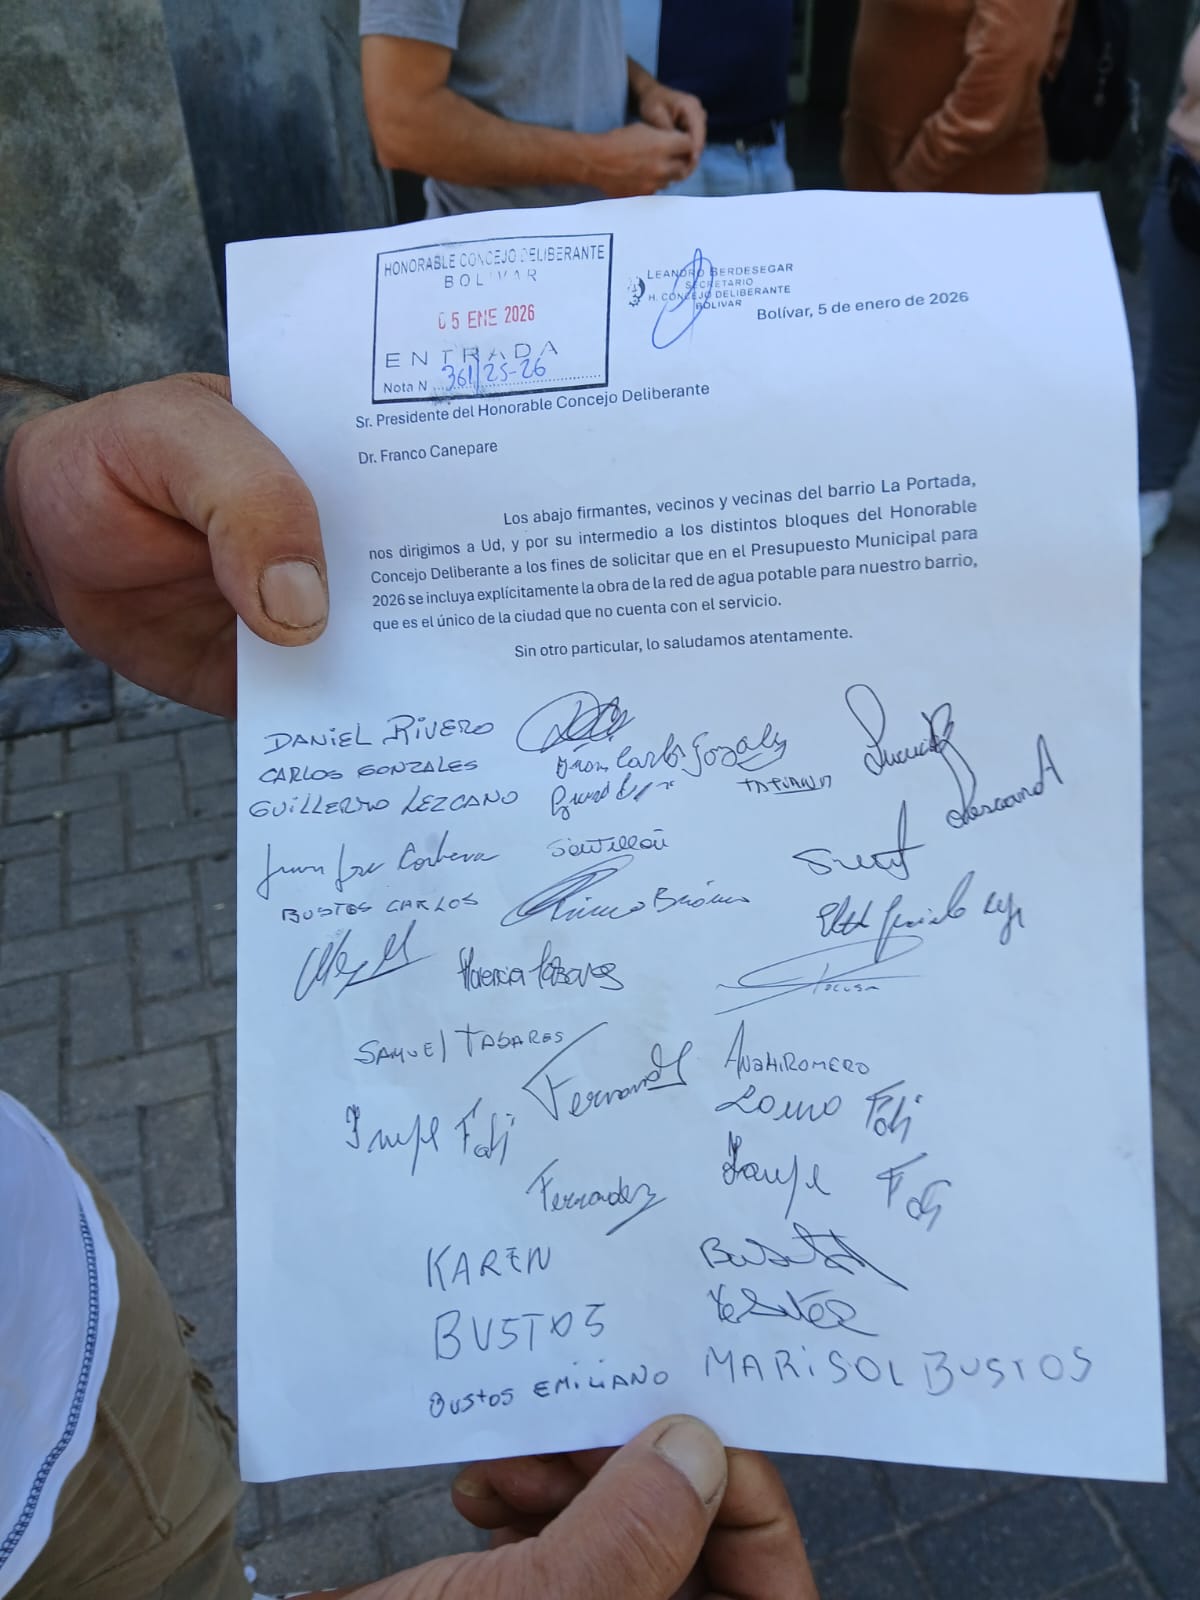 HONORABLE CONCEJO DELIBERANTE
BOLIVAR
05 ENE 2026
ENTRADA
Nota N 361/25-26
LEANDRO BERDESEGAR
SECRETARIO
H. CONCEJO DELIBERANTE
BOLIVAR
Bolívar, 5 de enero de 2026
Sr. Presidente del Honorable Concejo Deliberante
Dr. Franco Canepare
Los abajo firmantes, vecinos y vecinas del barrio La Portada,
nos dirigimos a Ud, y por su intermedio a los distintos bloques del Honorable
Concejo Deliberante a los fines de solicitar que en el Presupuesto Municipal para
2026 se incluya explícitamente la obra de la red de agua potable para nuestro barrio,
que es el único de la ciudad que no cuenta con el servicio.
Sin otro particular, lo saludamos atentamente.
DANIEL RIVERO
CARLOS GONZALES
GUILLERMO LEZCANO
BUSTOS CARLOS
SAMUEL TABARES
ANAHI ROMERO
Fernandez
KAREN
BUSTOS
BUSTOS EMILIANO
MARISOL BUSTOS